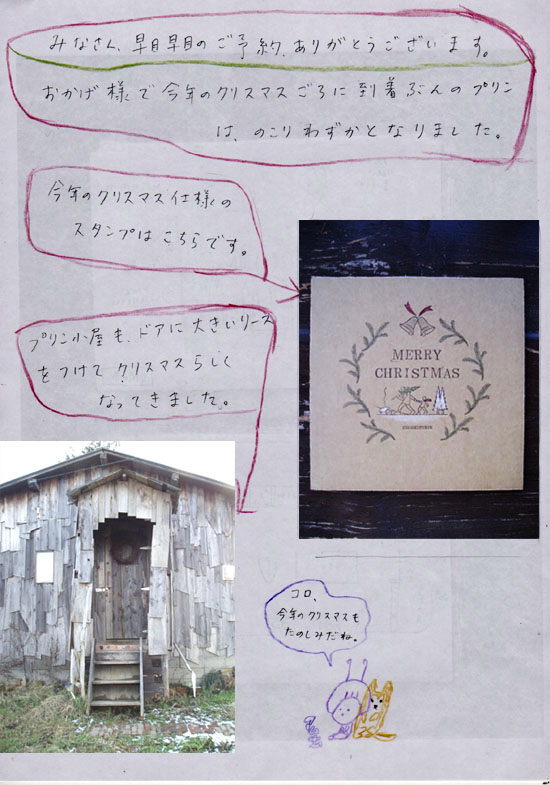 みなさん、早目早目のご予約、ありがとうございます。
おかげ様で今年のクリスマスごろに到着ぶんのプリン
は、のこりわずかとなりました。
今年のクリスマス仕様の
スタンプはこちらです。
MERRY
CHRISTMAS
プリン小屋も、ドアに大きいリース
をつけてクリスマスらしく
なってきました。
コロ、
今年のクリスマスも
たのしみだね。